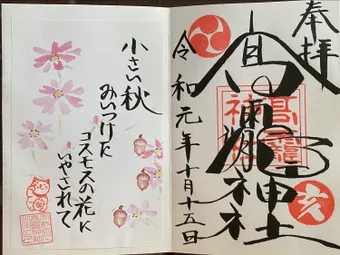 奉拝
神社
令和元年十月十五日
小さい秋
みいつけた
コスモスの花に
いやされて